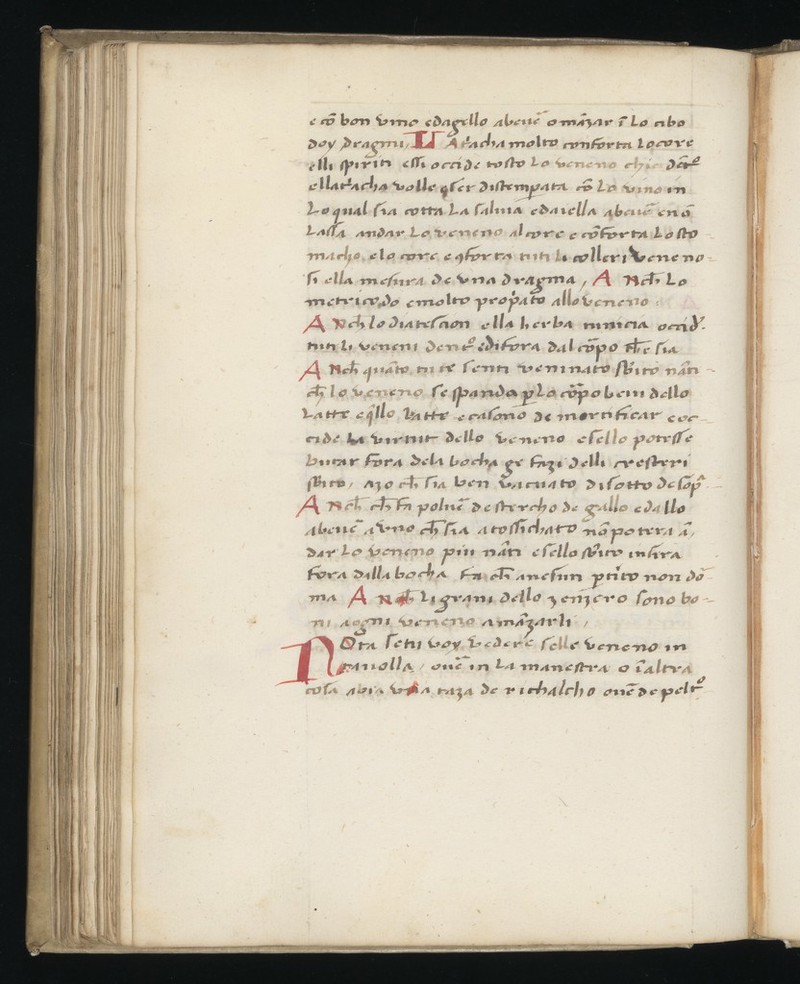 e cō bon vino edagello abeuē o māzar ī lo cibo
doy dragmi, La tiracha molto conforta lo core
elli spiriti essi occide tosto lo veneno chie dētº
ellatiracha volle esser distemperata cō lo vino in
Lo qual sia cotta La saluia edaiella abeuē enō
Lassa andar Lo veneno alcore e cōforta Lo sto-
macho, elo core e qforta tuti li colleri veneno-
si ella mesura de vna dragma, Anch Lo
metricodo emolto propiato allo veneno
Anch lo diatescion ella herba tunicia occid.
tuti li veneni dentº edifora dal cōpo che sia
Anch quāto tute senti veninato sbito nāti-
ch lo veneno se spanda p Lo cōpo beiu dello
Latte eqllo Latte ecasone de mortificar eoc-
cide la virtut dello veneno esello potesse
butar fora dela bocha ge fazi delli cresteri
sbito, azo ch sia ben vacuato disotto desop-
Anch ch fa poluē de stercho de gallo edallo
abeuē a vno ch sia atossichato nō potera ā,
dar lo veneno piu nāti esello sbito insira
fora dalla bocha fa ch anesun ptito non dō-
ma Anch Li grani dello zenzero sono bo-
ni aogni veneno amāzarli,
Nota setu voy vedere selle veneno in
tauolla, ouē in La manestra o ī altra
cosa abia vna taza de richalcho ouē de peltº